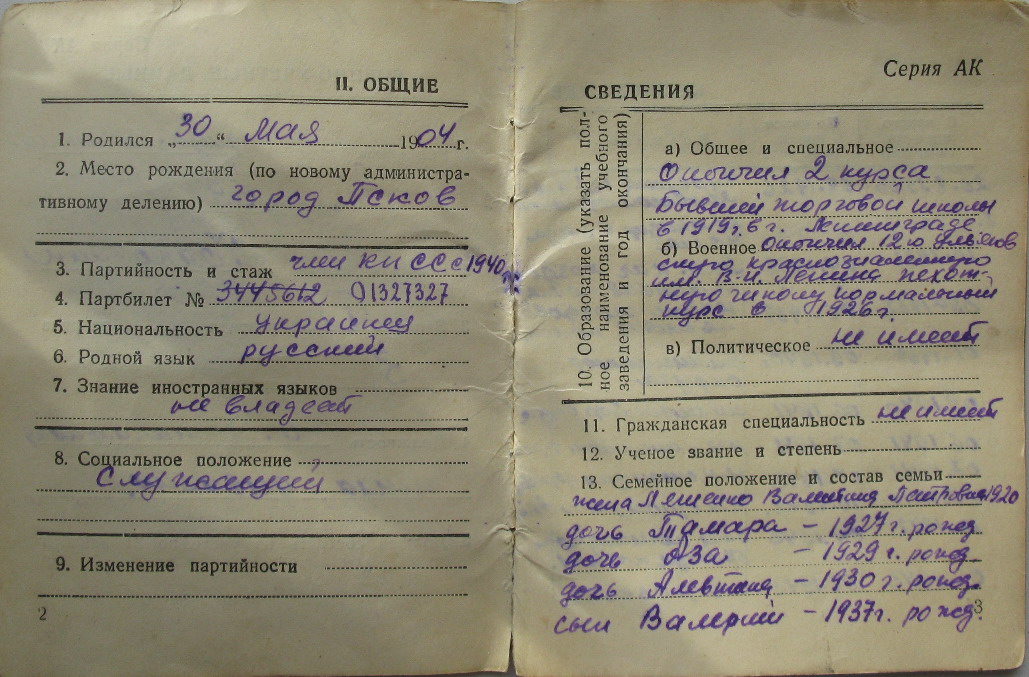 II. ОБЩИЕ
1. Родился „30“ мая 1904 г.
2. Место рождения (по новому администра-
тивному делению) город Псков
3. Партийность и стаж член КП ССС 1940
4. Партбилет № 3445612 01327327
5. Национальность украинец
6. Родной язык русский
7. Знание иностранных языков
не владеет
8. Социальное положение
Служащий
9. Изменение партийности
2
Серия АК
СВЕДЕНИЯ
10. Образование (указать пол-
ное наименование учебного
заведения и год окончания)
а) Общее и специальное
Окончил 2 курса
бывшей торговой школы
в 1919 г. в г. Ленинграде
б) Военное окончил 12ю
краснознаменную
им. В.И. Ленина пехот-
ную школу нормальный
курс в 1926 г.
в) Политическое не имеет
11. Гражданская специальность не имеет
12. Ученое звание и степень
13. Семейное положение и состав семьи
жена Лещенко Валентина Петровна 1920
дочь Тамара – 1927 г. рожд
дочь Аза – 1929 г. рожд
дочь Алевтина – 1930 г. рожд.
сын Валерий – 1937 г. рожд.
3